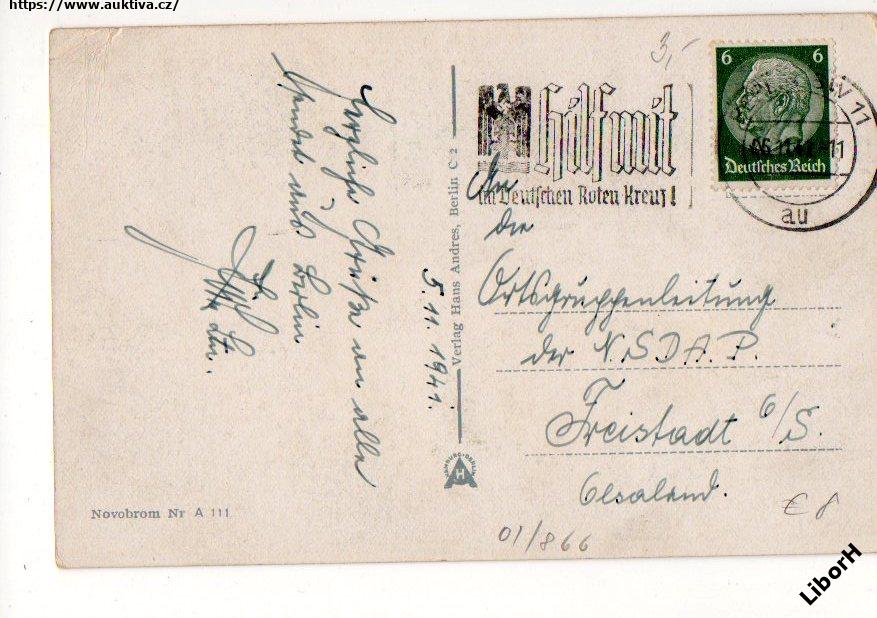 https://www.auktiva.cz/
3,-
6 6
Deutsches Reich
11
au
hilf mit
im Deutschen Roten Kreuz!
Herzliche Grüße an alle
sendet aus Berlin
Ltn.
5.11.1941.
Verlag Hans Andres, Berlin C 2
HAMBURG-BERLIN
H
An
die
Ortsgruppenleitung
der N.S.D.A.P.
Freistadt O/S.
Olsaland.
€ 8
01/866
Novobrom Nr A 111
LiborH